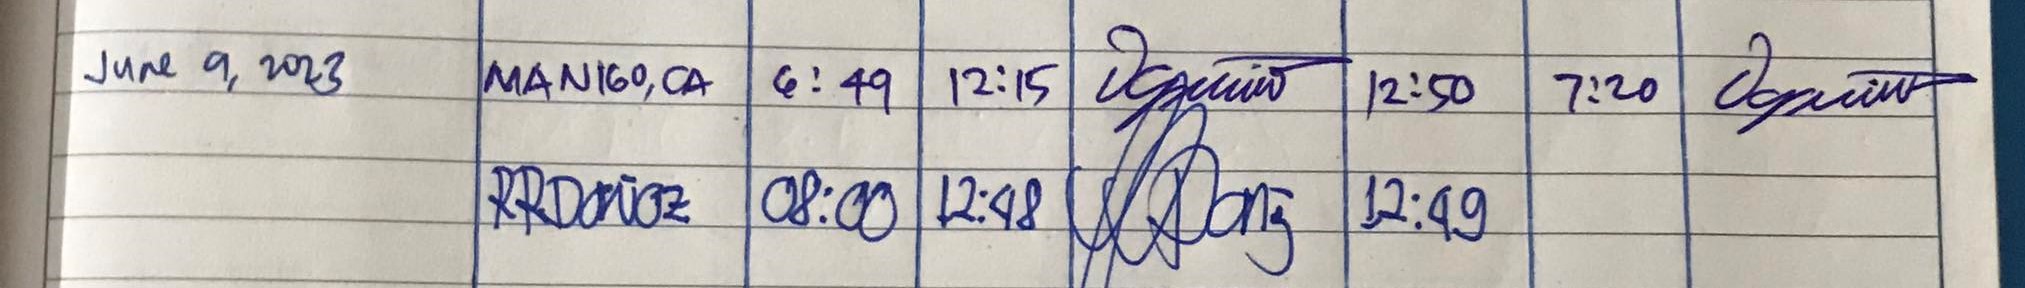 June 9, 2023 MANIGO, CA 6:49 12:15 12:50 7:20
RRDOÑOZ 08:00 12:48 12:49